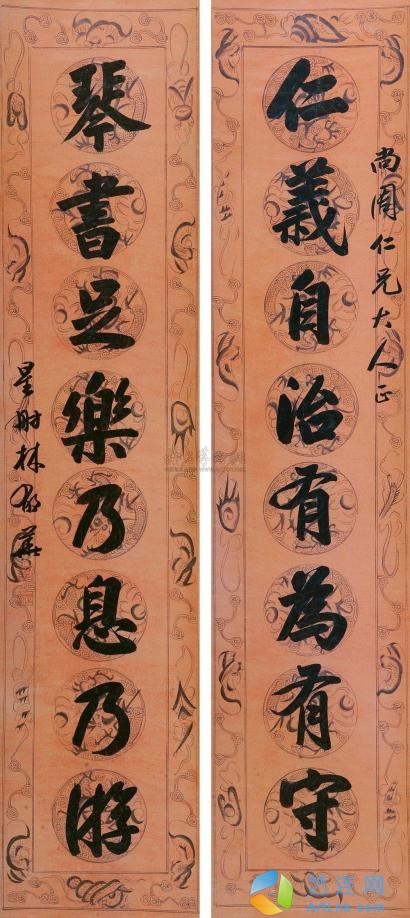 尚周仁兄大人正
仁義自治有為有守
琴書足樂乃息乃游
星 林
艺连网